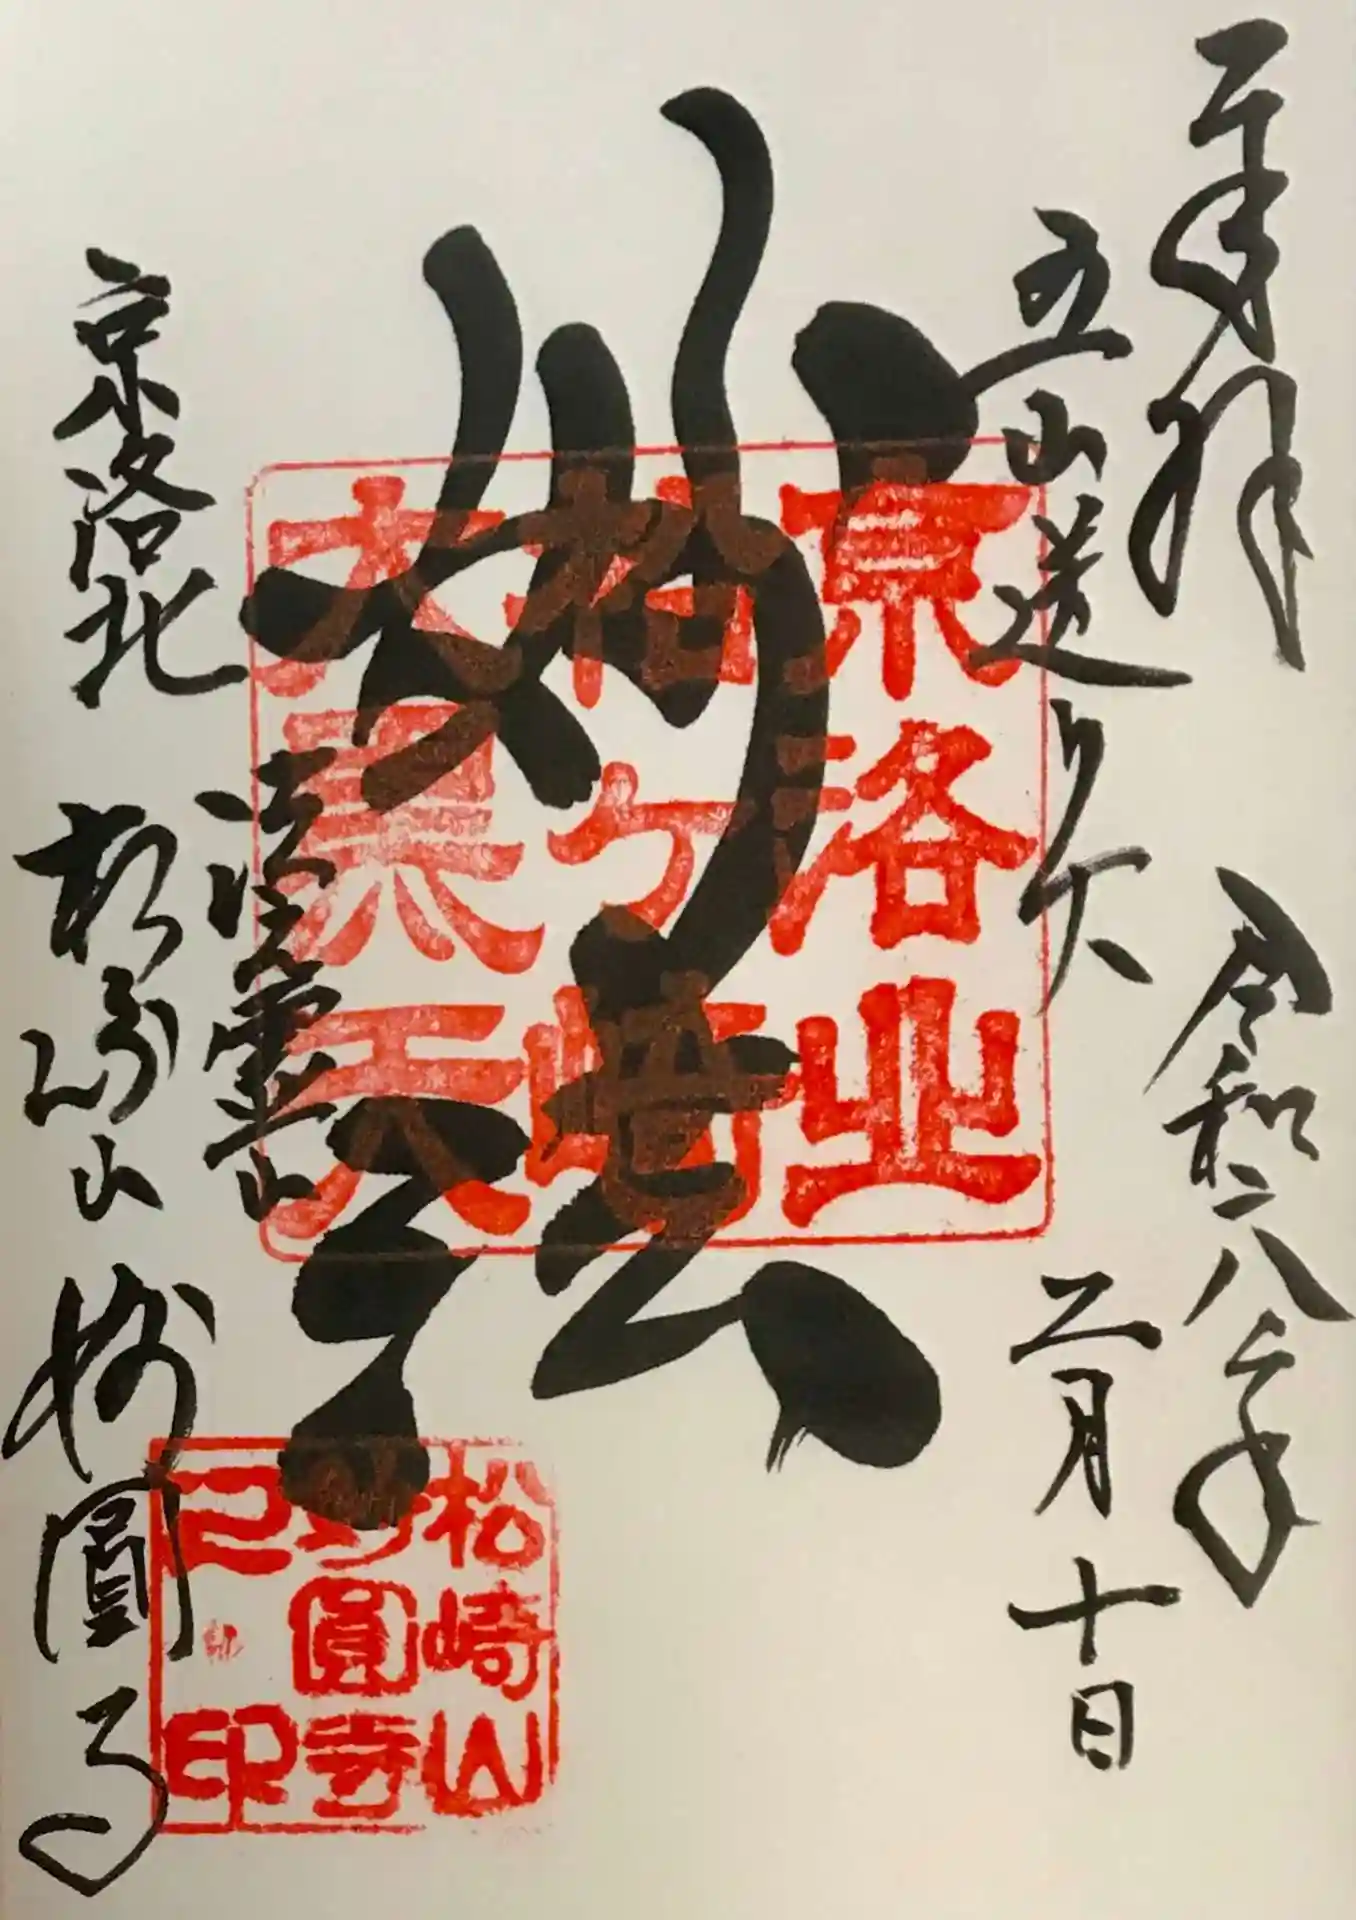 奉拝
令和二八二年
五山送り火
二月十日
妙法
京洛北
松ヶ崎
大黒天
法霊山
京洛北
松ヶ崎山
妙圓寺
松崎山
妙圓寺
印